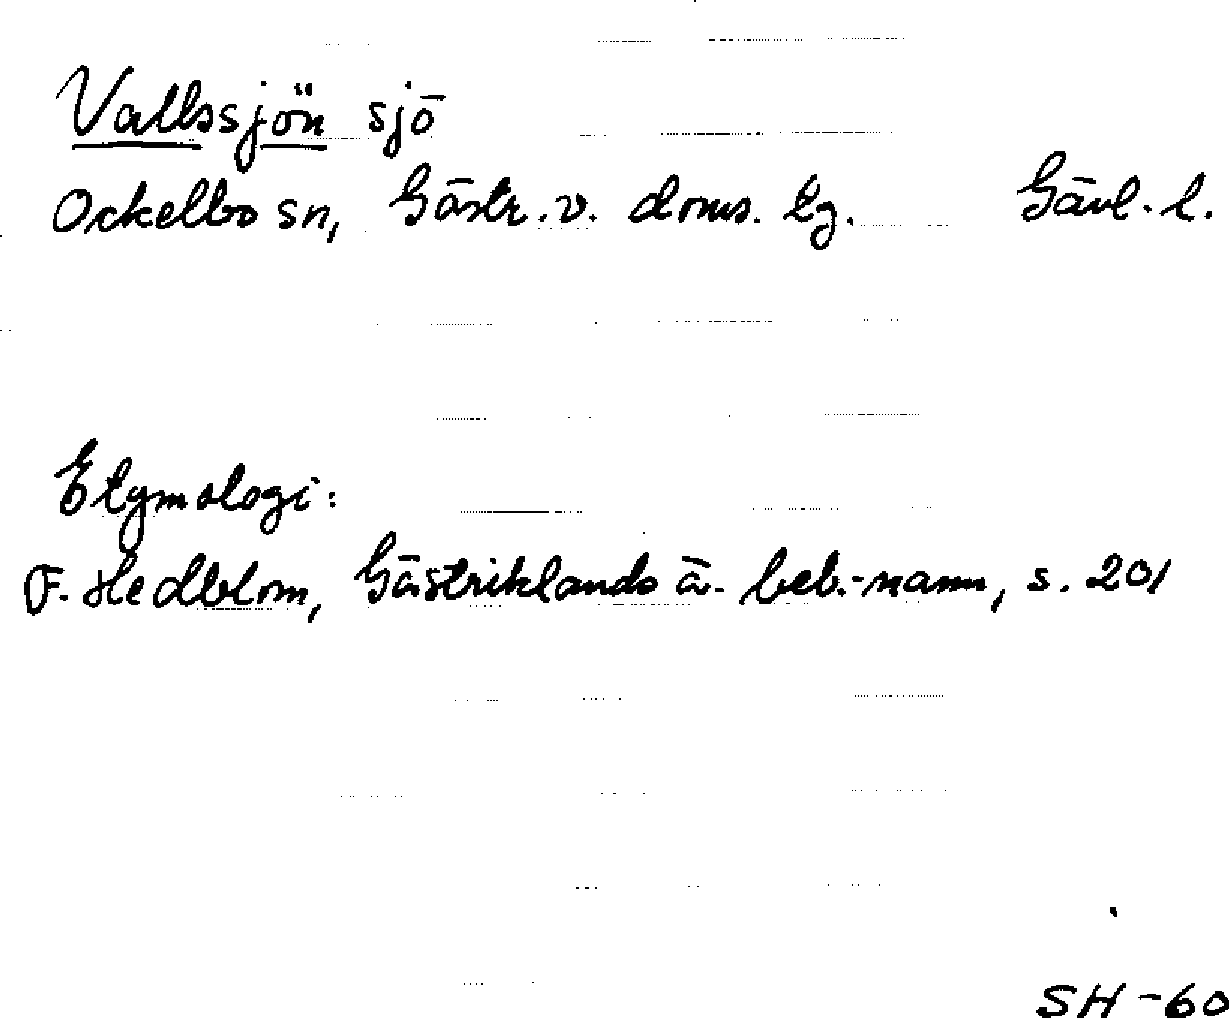 Vallssjön sjö
Ockelbo sn, Gästr. v. doms. tg. Gävl. l.
Etymologi:
F. Hedblom, Gästriklands ä. beb.-namn, s. 201
SH-60